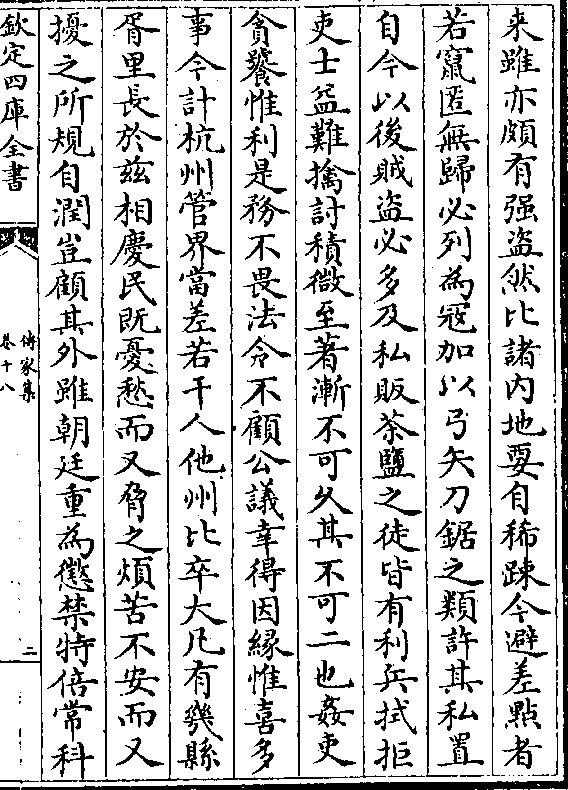 来雖亦頗有强盗然比諸内地要自稀踈今避差㸃者
若竄匿無歸必列為宼加以弓矢刀鋸之類許其私置
自今以後賊盗必多及私販茶鹽之徒皆有利兵拭拒
吏士益難擒討積微至著漸不可久其不可二也姦吏
貪饕惟利是務不畏法令不顧公議幸得因縁惟喜多
事今計杭州管界當差若干人他州比卒大凡有幾縣
胥里長於兹相慶民既憂愁而又脅之煩苦不安而又
擾之所規自潤豈顧其外雖朝廷重為懲禁特倍常科
欽定四庫全書
傳家集
卷十八
二